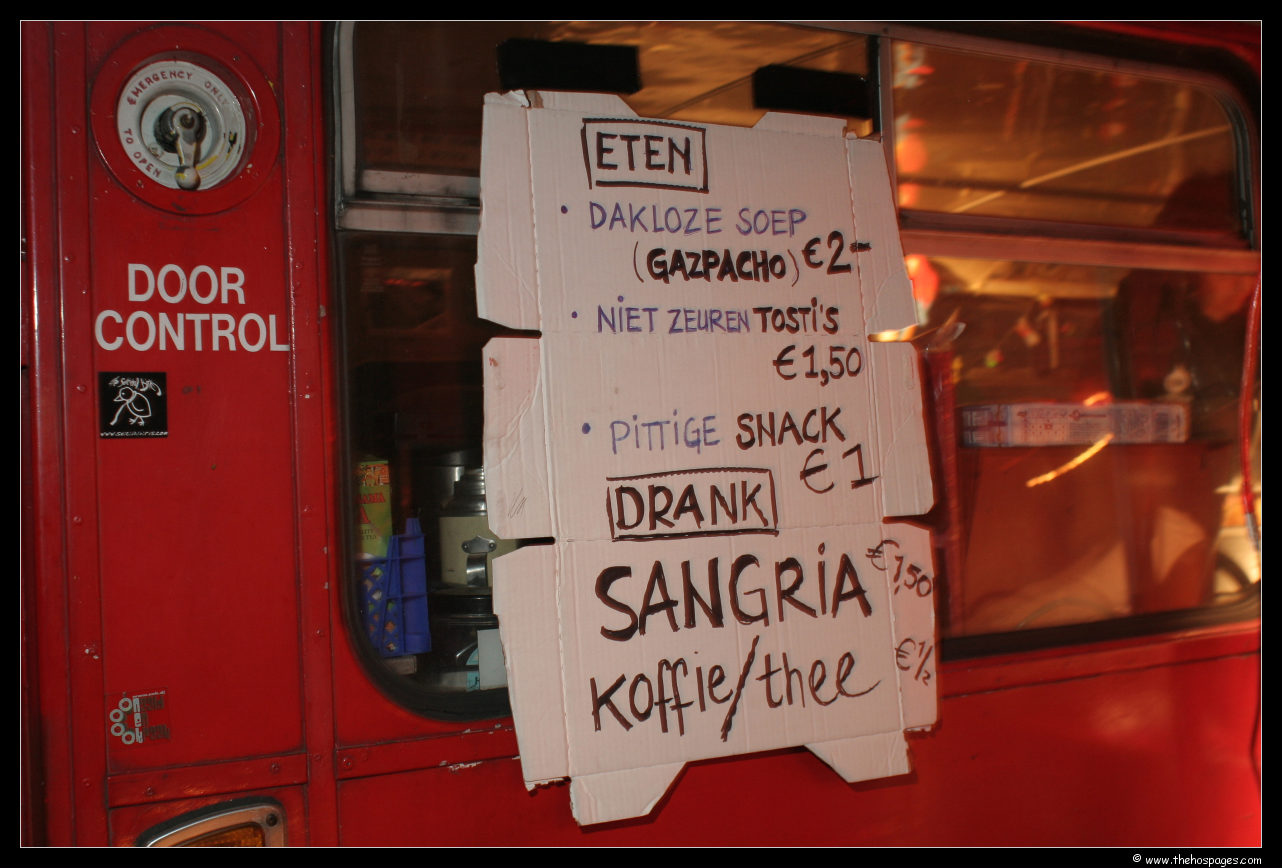 EMERGENCY ONLY
TO OPEN
DOOR
CONTROL
ETEN
• DAKLOZE SOEP
(GAZPACHO) €2-
• NIET ZEUREN TOSTI'S
€1,50
• PITTIGE SNACK
€1
DRANK
SANGRIA €1,50
KOFFIE/thee €1/2
© www.thehospages.com